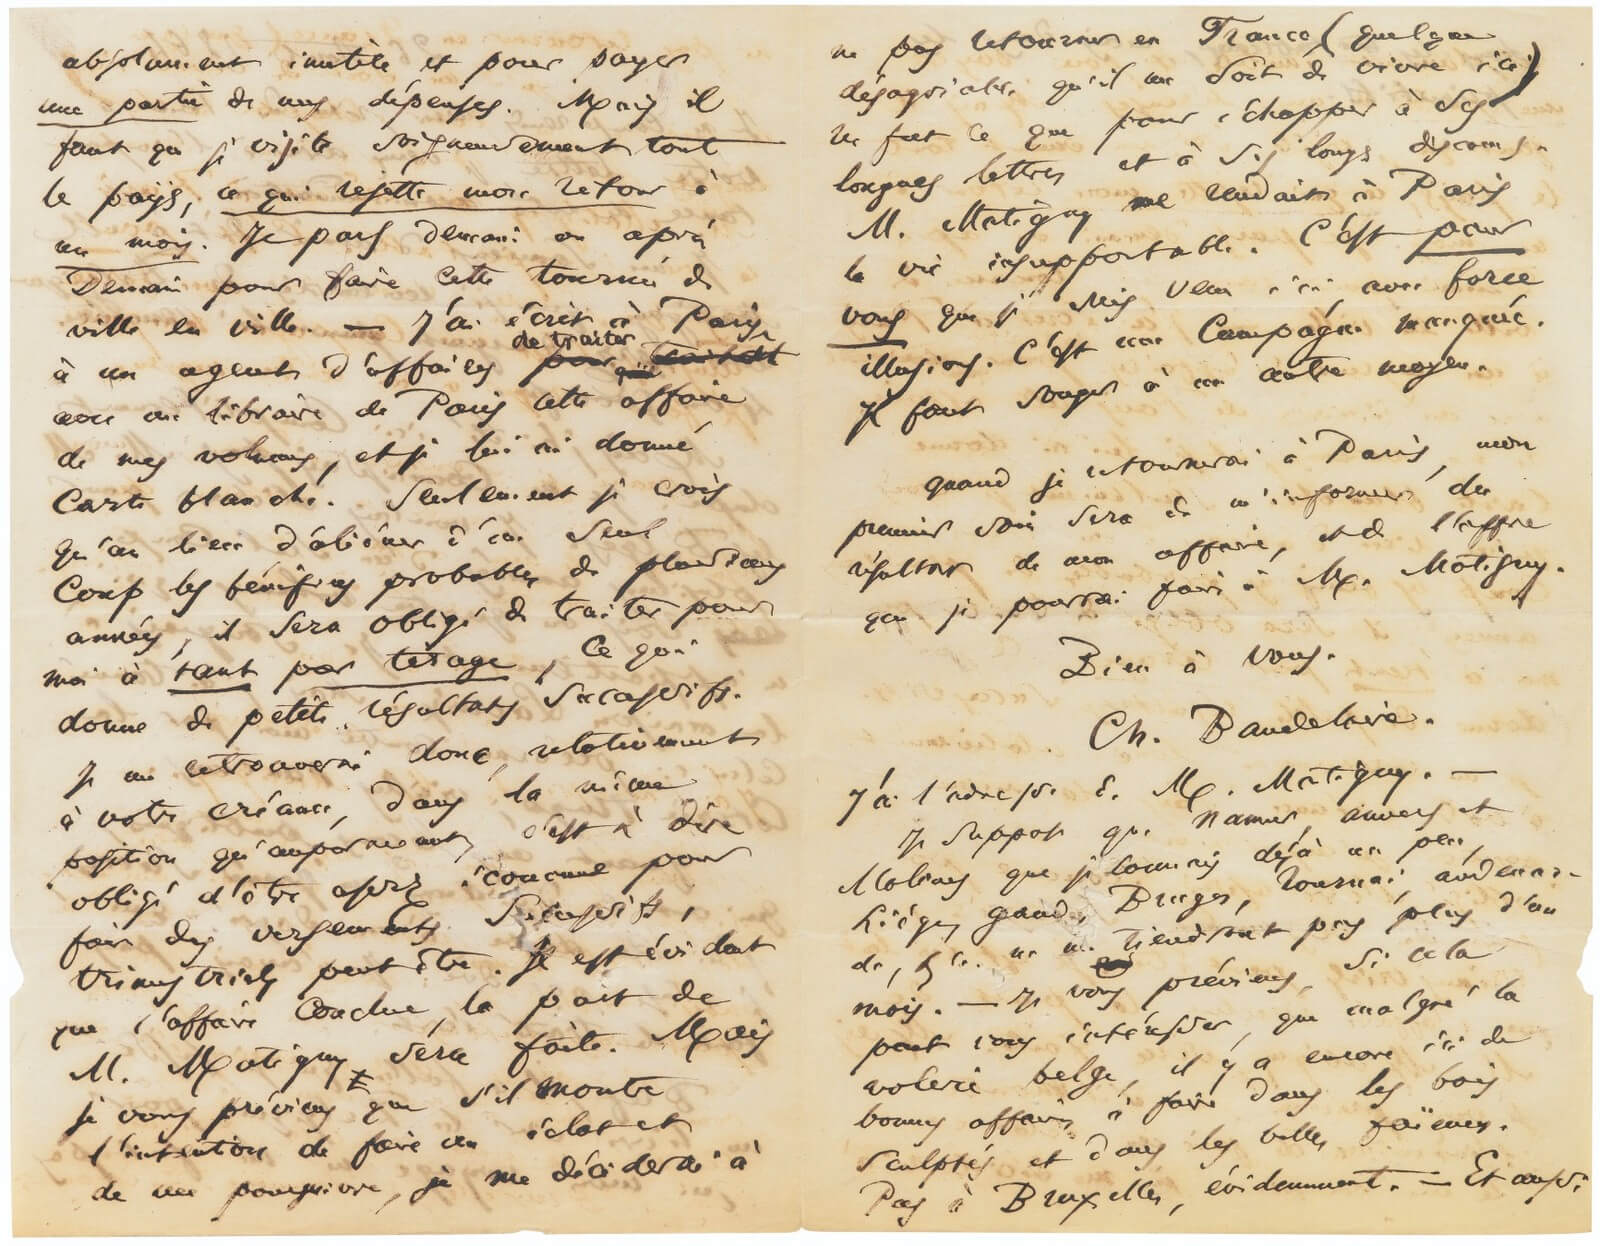 absolument inutile et pour payer
une partie de mes dépenses. Mais il
faut que je visite soigneusement tout
le pays, ce qui rejette mon retour à
un mois. Je pars demain ou après
Demain pour faire cette tournée de
ville en ville. — J'ai écrit à Paris,
à un agent d'affaires de traiter
avec un libraire de Paris cette affaire
de mes volumes, et je lui ai donné
Carte blanche. Seulement je crois
qu'au lieu d'aliéner d'un seul
Coup les bénéfices probables de plusieurs
années, il sera obligé de traiter pour
moi à tant par tirage, ce qui
donne de petits résultats successifs.
Je me retrouverai donc, relativement
à votre créance, dans la même
position qu'auparavant, c'est à dire
obligé d'être assez économe pour
faire des versements successifs,
trimestriels peut-être. Il est évident
que l'affaire conclue, la part de
M. Matigny sera faite. Mais
je vous préviens que s'il montre
l'intention de faire un éclat et
de me poursuivre, je me déciderai à
ne pas retourner en France (quelque
désagréable qu'il me soit de vivre ici)
ne fût ce que pour échapper à ses
longues lettres et à ses longs discours.
M. Matigny me rendait à Paris
la vie insupportable. C'est pour
vous que je suis venu ici, avec force
illusions. C'est une Campagne manquée.
Il faut songer à un autre moyen.
quand je retournerai à Paris, mon
premier soin sera de m'informer du
résultat de mon affaire, et de l'offre
que je pourrai faire à M. Matigny.
Bien à vous.
Ch. Baudelaire.
J'ai l'adresse de M. Matigny. —
Je suppose que Namur, Anvers et
Malines que je connais déjà un peu,
Liège, Gand, Bruges, Tournai, Audenar-
de, etc. ne me tiendront pas plus d'un
mois. — Je vous préviens, si cela
peut vous intéresser, que malgré la
volerie belge, il y a encore ici de
bonnes affaires à faire dans les bois
sculptés et dans les belles faïences.
Pas à Bruxelles, évidemment. — Et aussi